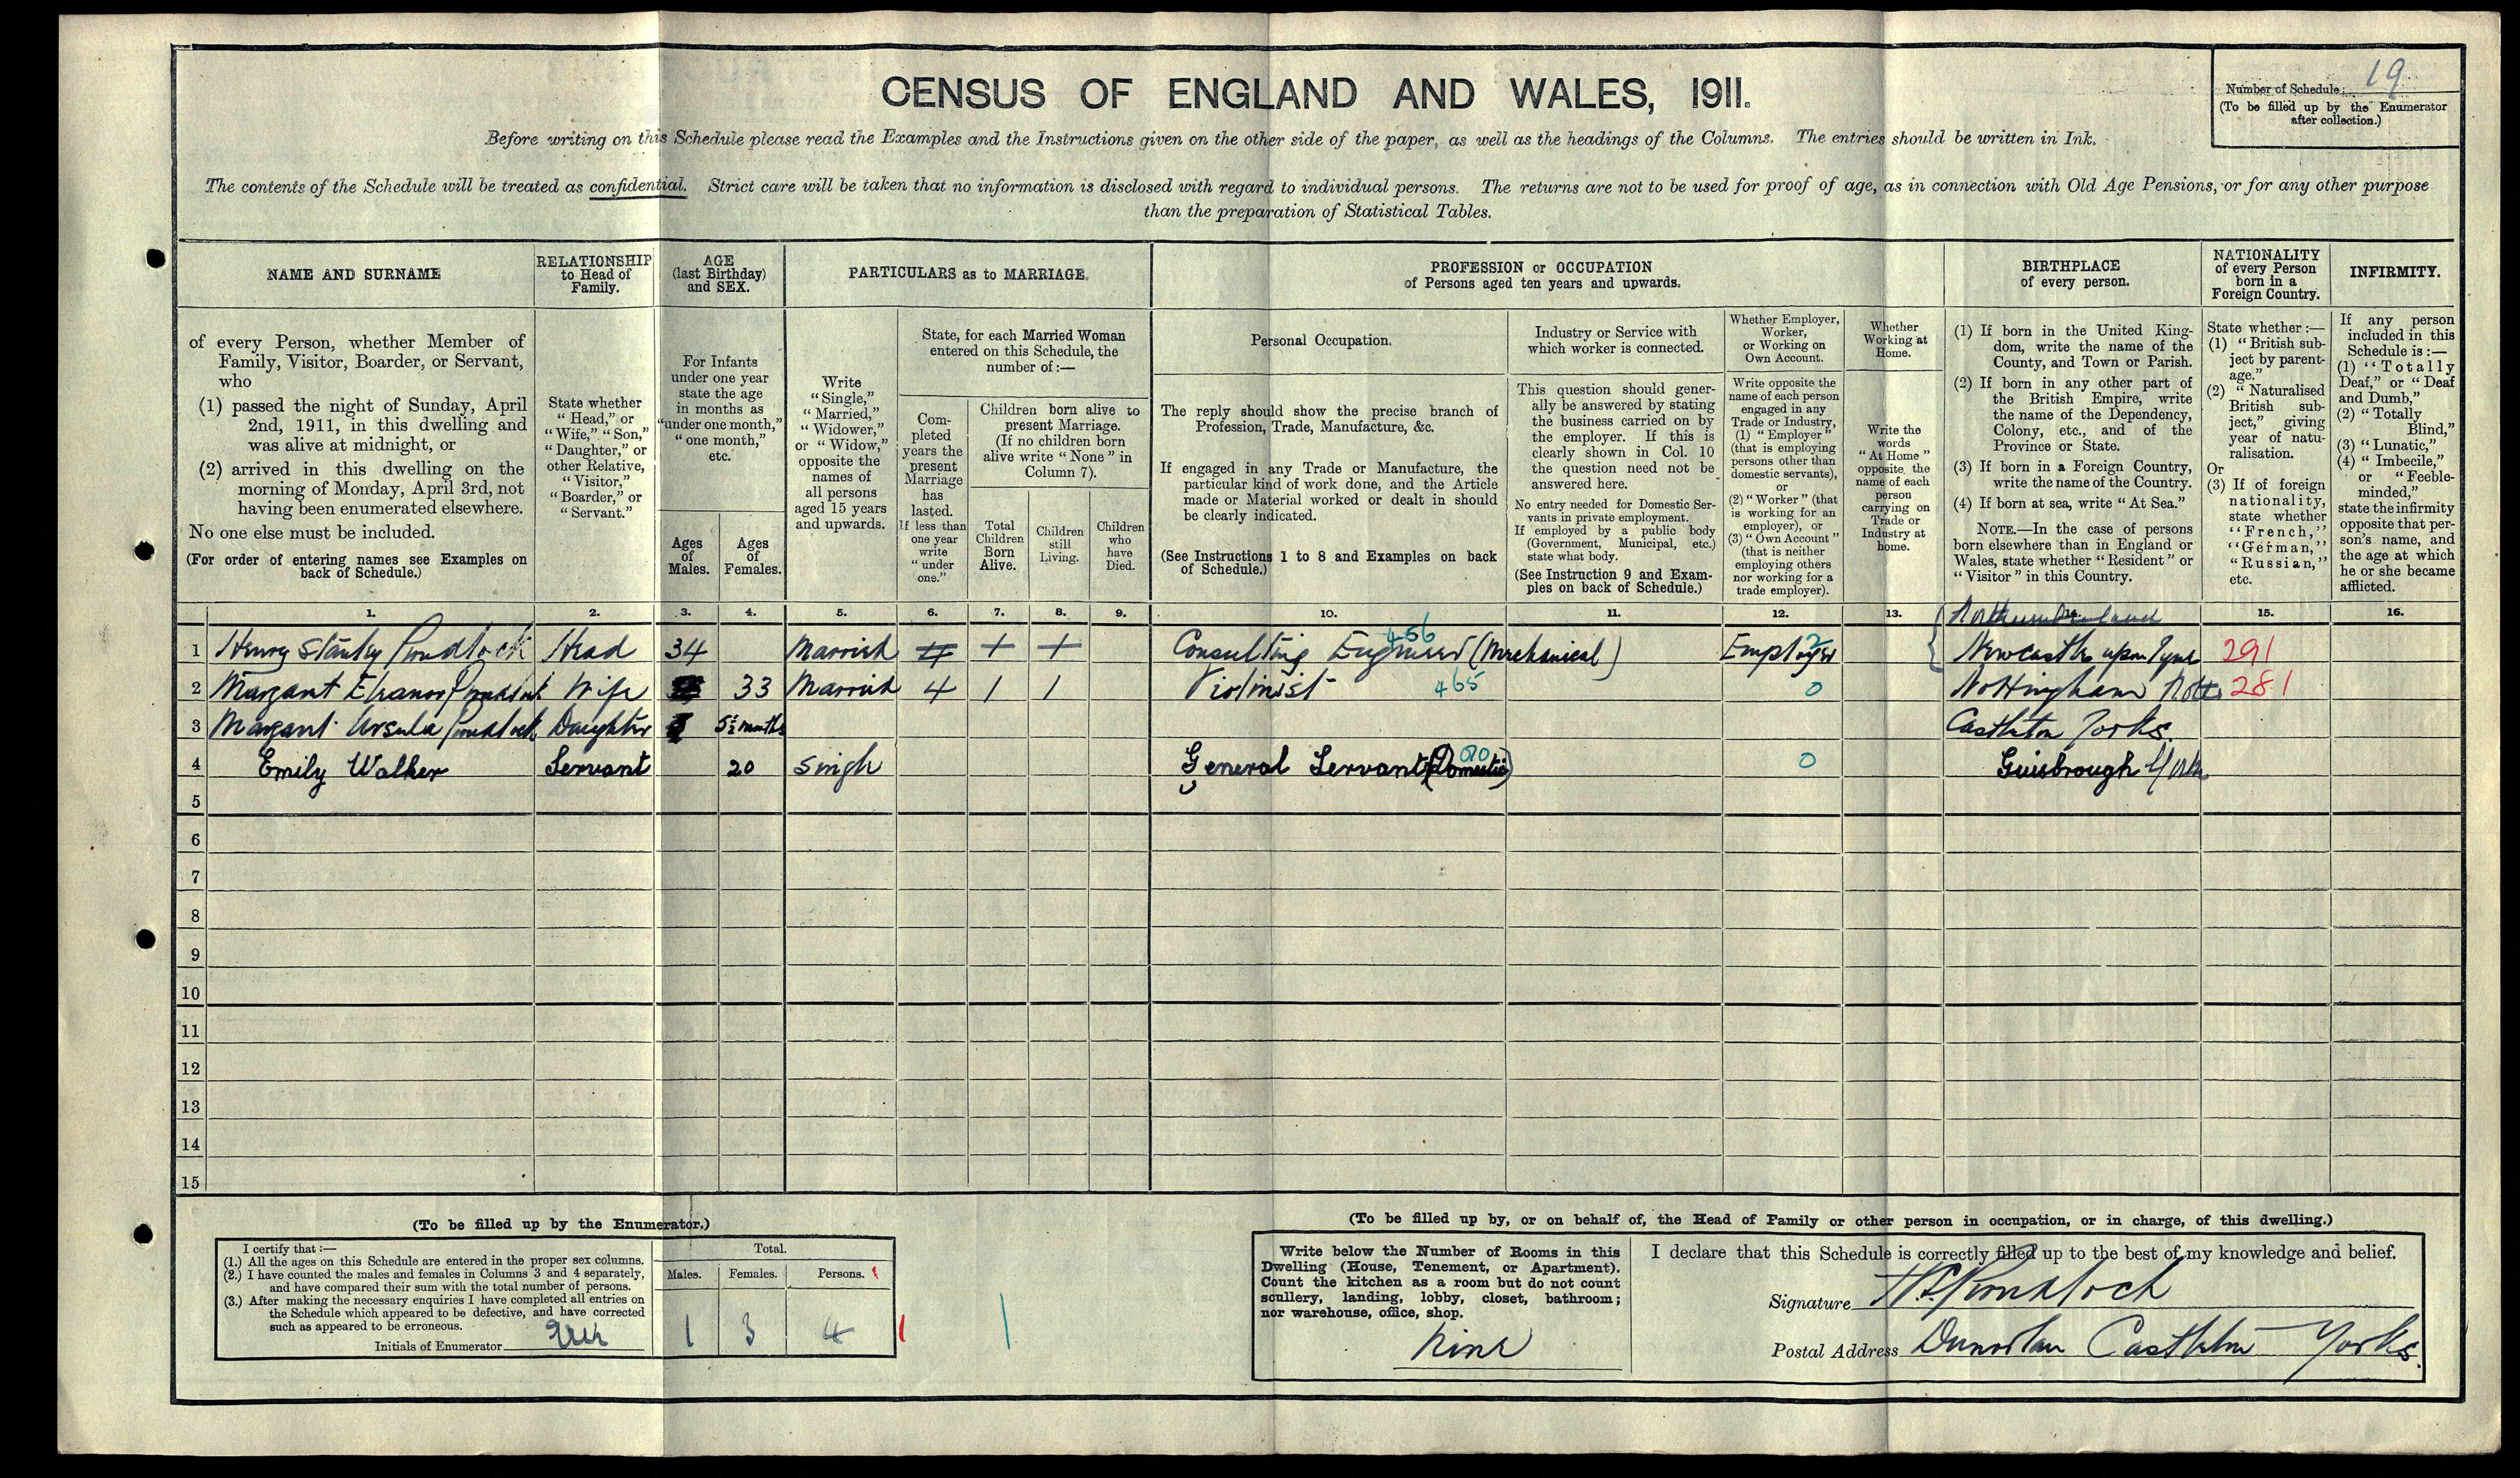 CENSUS OF ENGLAND AND WALES, 1911.
Number of Schedule: 19
(To be filled up by the Enumerator
after collection.)
Before writing on this Schedule please read the Examples and the Instructions given on the other side of the paper, as well as the headings of the Columns. The entries should be written in Ink.
The contents of the Schedule will be treated as confidential. Strict care will be taken that no information is disclosed with regard to individual persons. The returns are not to be used for proof of age, as in connection with Old Age Pensions, or for any other purpose
than the preparation of Statistical Tables.
NAME AND SURNAME
of every Person, whether Member of
Family, Visitor, Boarder, or Servant,
who
(1) passed the night of Sunday, April
2nd, 1911, in this dwelling and
was alive at midnight, or
(2) arrived in this dwelling on the
morning of Monday, April 3rd, not
having been enumerated elsewhere.
No one else must be included.
(For order of entering names see Examples on
back of Schedule.)
RELATIONSHIP
to Head of
Family.
State whether
"Head," or
"Wife," "Son,"
"Daughter," or
other Relative,
"Visitor,"
"Boarder," or
"Servant."
AGE
(last Birthday)
and SEX.
For Infants
under one year
state the age
in months as
"under one month,"
"one month,"
etc.
Ages
of
Males.
Ages
of
Females.
PARTICULARS as to MARRIAGE.
Write
"Single,"
"Married,"
"Widower,"
or "Widow,"
opposite the
names of
all persons
aged 15 years
and upwards.
State, for each Married Woman
entered on this Schedule, the
number of:—
Com-
pleted
years the
present
Marriage
has
lasted.
If less than
one year
write
"under
one."
Children born alive to
present Marriage.
(If no children born
alive write "None" in
Column 7).
Total
Children
Born
Alive.
Children
still
Living.
Children
who
have
Died.
PROFESSION or OCCUPATION
of Persons aged ten years and upwards.
Personal Occupation.
The reply should show the precise branch of
Profession, Trade, Manufacture, &c.
If engaged in any Trade or Manufacture, the
particular kind of work done, and the Article
made or Material worked or dealt in should
be clearly indicated.
(See Instructions 1 to 8 and Examples on back
of Schedule.)
Industry or Service with
which worker is connected.
This question should gener-
ally be answered by stating
the business carried on by
the employer. If this is
clearly shown in Col. 10
the question need not be
answered here.
No entry needed for Domestic Ser-
vants in private employment.
If employed by a public body
(Government, Municipal, etc.)
state what body.
(See Instruction 9 and Exam-
ples on back of Schedule.)
Whether Employer,
Worker,
or Working on
Own Account.
Write opposite the
name of each person
engaged in any
Trade or Industry,
(1) "Employer"
(that is employing
persons other than
domestic servants),
or
(2) "Worker" (that
is working for an
employer), or
(3) "Own Account"
(that is neither
employing others
nor working for a
trade employer).
Whether
Working at
Home.
Write the
words
"At Home"
opposite the
name of each
person
carrying on
Trade or
Industry at
home.
BIRTHPLACE
of every person.
(1) If born in the United King-
dom, write the name of the
County, and Town or Parish.
(2) If born in any other part of
the British Empire, write
the name of the Dependency,
Colony, etc., and of the
Province or State.
(3) If born in a Foreign Country,
write the name of the Country.
(4) If born at sea, write "At Sea."
NOTE.—In the case of persons
born elsewhere than in England or
Wales, state whether "Resident" or
"Visitor" in this Country.
NATIONALITY
of every Person
born in a
Foreign Country.
State whether:—
(1) "British sub-
ject by parent-
age."
(2) "Naturalised
British sub-
ject," giving
year of natu-
ralisation.
Or
(3) If of foreign
nationality,
state whether
"French,"
"German,"
"Russian,"
etc.
INFIRMITY.
If any person
included in this
Schedule is:—
(1) "Totally
Deaf," or "Deaf
and Dumb,"
(2) "Totally
Blind,"
(3) "Lunatic,"
(4) "Imbecile,"
or "Feeble-
minded,"
state the infirmity
opposite that per-
son's name, and
the age at which
he or she became
afflicted.
1. 2. 3. 4. 5. 6. 7. 8. 9. 10. 11. 12. 13. 14. 15. 16.
Northumberland
1 Henry Stanley Proudlock Head 34 Married 4 1 1 Consulting Engineer (Mechanical) 456 Employer 2 Newcastle upon Tyne 291
2 Margaret Eleanor Proudlock Wife 33 Married 4 1 1 Violinist 465 0 Nottingham Notts 281
3 Margaret Ursula Proudlock Daughter 5½ months Castleton Yorks.
4 Emily Walker Servant 20 Single General Servant (Domestic) 0 Guisbrough Yorks
5
6
7
8
9
10
11
12
13
14
15
(To be filled up by the Enumerator.)
I certify that:—
(1.) All the ages on this Schedule are entered in the proper sex columns.
(2.) I have counted the males and females in Columns 3 and 4 separately,
and have compared their sum with the total number of persons.
(3.) After making the necessary enquiries I have completed all entries on
the Schedule which appeared to be defective, and have corrected
such as appeared to be erroneous.
Initials of Enumerator
Total.
Males. Females. Persons.
1 3 4
(To be filled up by, or on behalf of, the Head of Family or other person in occupation, or in charge, of this dwelling.)
Write below the Number of Rooms in this
Dwelling (House, Tenement, or Apartment).
Count the kitchen as a room but do not count
scullery, landing, lobby, closet, bathroom;
nor warehouse, office, shop.
Nine
I declare that this Schedule is correctly filled up to the best of my knowledge and belief.
Signature H.S. Proudlock
Postal Address Castleton Yorks.